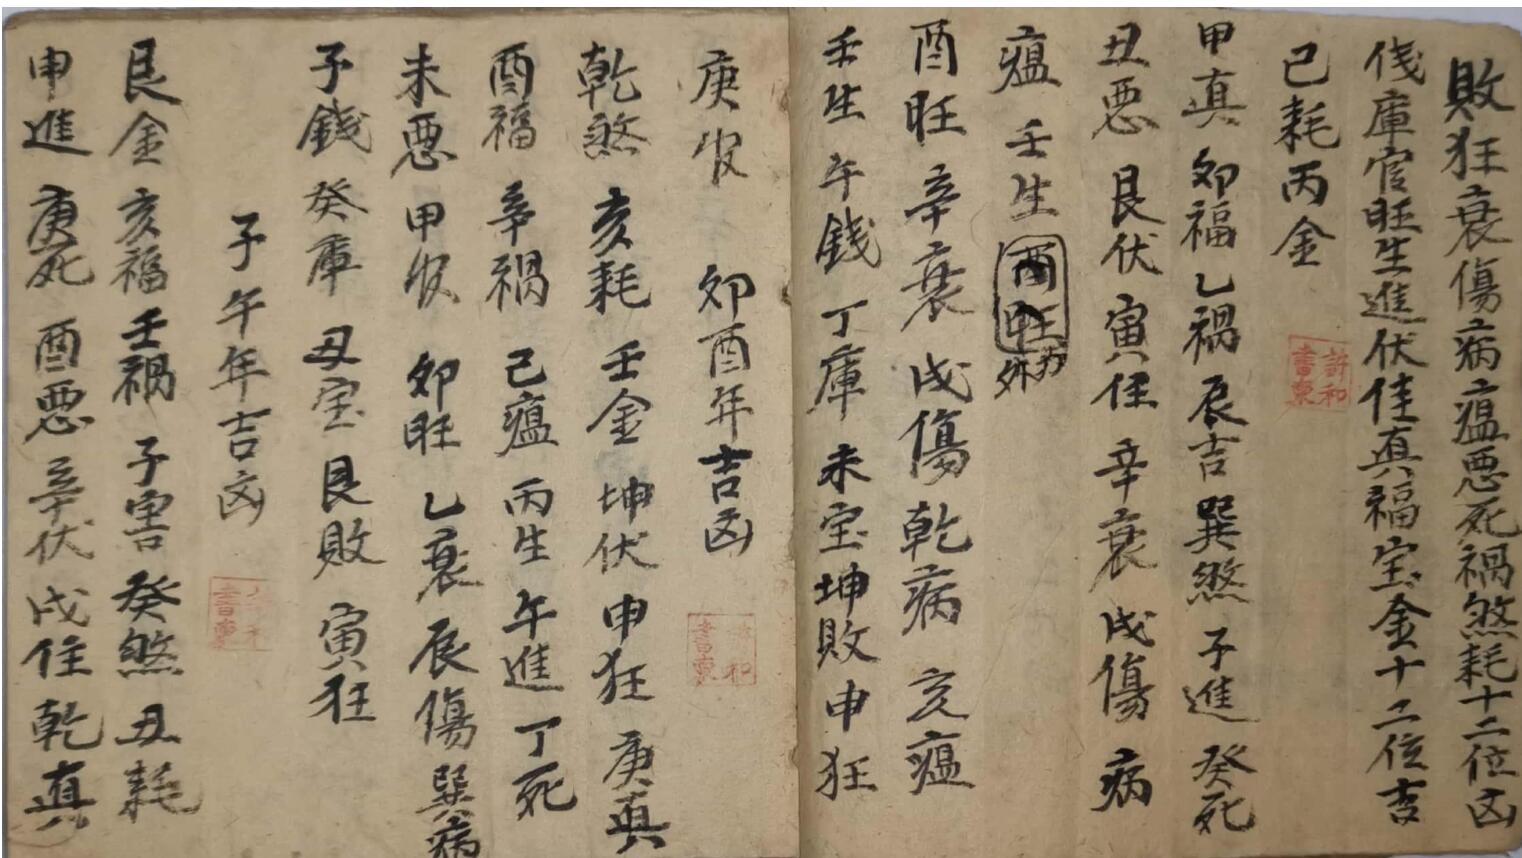 敗狂衰傷病瘟惡死禍煞耗十二位凶
伐庫官旺生進伏佳真福宝金十二位吉
己耗丙金
甲真 卯福乙禍 辰吉巽煞 子進 癸死
丑惡 艮伏 寅佳 辛衰 戌傷 病
瘟 壬生 酉旺
酉旺 辛衰 戌傷乾病 亥瘟
壬生 午錢 丁庫 未宝坤敗申狂
庚 卯酉年吉凶
乾煞 亥耗 壬金坤伏 申狂 庚真
酉福 辛禍 己瘟 丙生 午進 丁死
未惡 甲 卯旺 乙衰 辰傷 巽病
子錢 癸庫 丑宝 艮敗 寅狂
子午年吉凶
艮金 亥福 壬禍 子害 癸煞 丑耗
申進 庚死 酉惡 辛伏 戌住 乾真